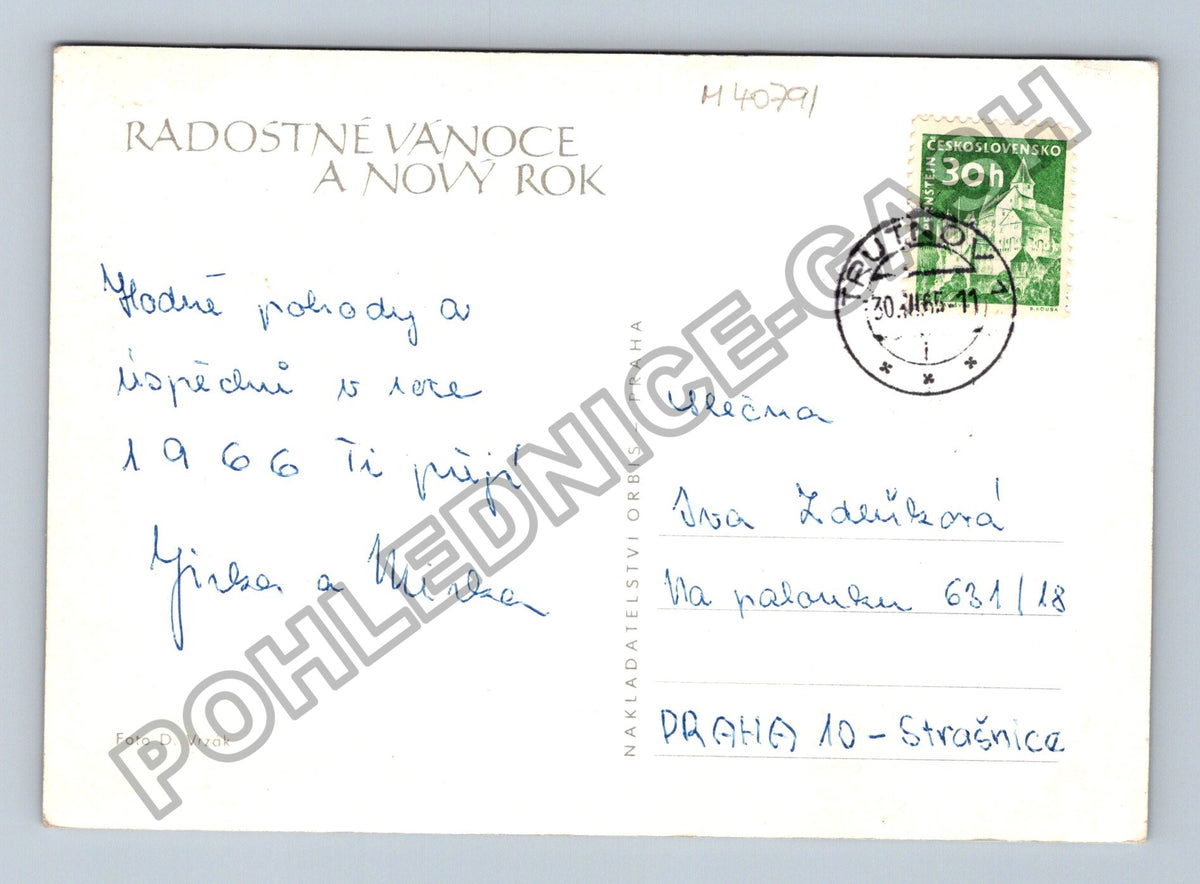 M 40791
RADOSTNÉ VÁNOCE
A NOVÝ ROK
ČESKOSLOVENSKO
30h
TRUTNOV 1
30.XII.65-11
Hodně pohody a
úspěchů v roce
1966 Ti přejí
Jirka a Mirka
Foto D. Vrzak
NAKLADATELSTVI ORBIS – PRAHA
slečna
Iva
Na palouku 631/18
PRAHA 10 – Strašnice
POHLEDNICE-GASH